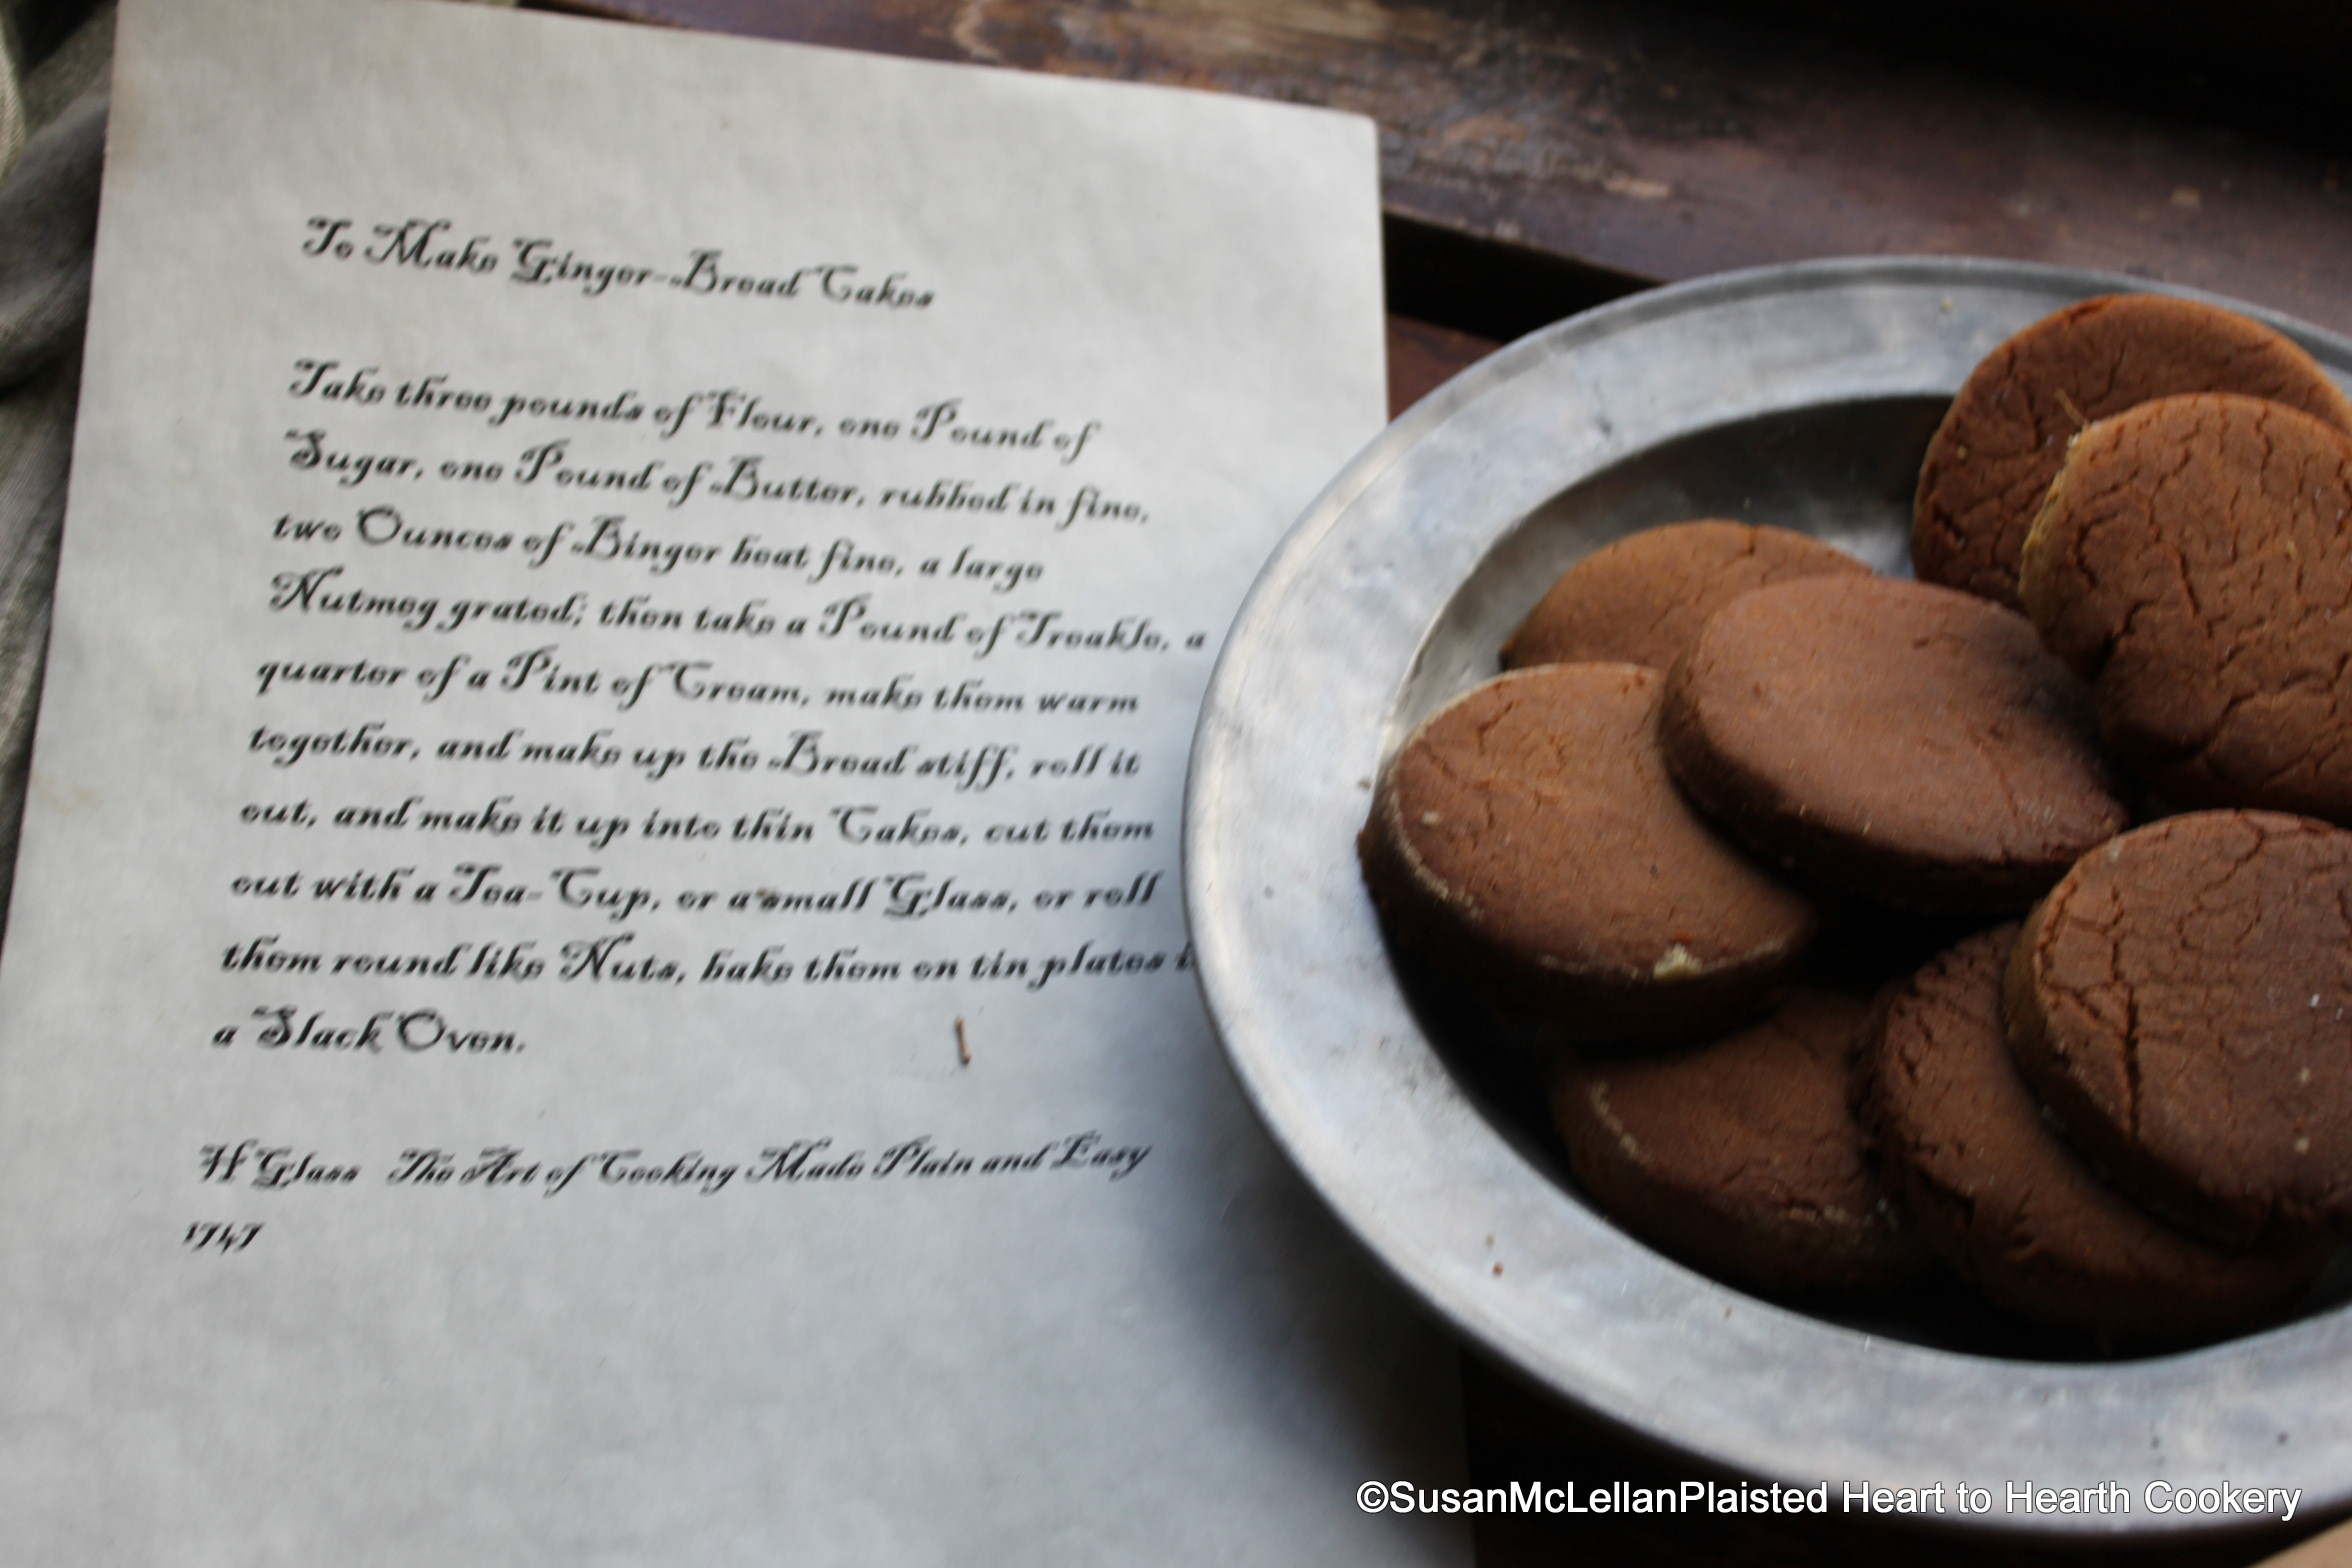 To Make Ginger-Bread Cakes
Take three pounds of Flour, one Pound of
Sugar, one Pound of Butter, rubbed in fine,
two Ounces of Binger beat fine, a large
Nutmeg grated; then take a Pound of Treakle, a
quarter of a Pint of Cream, make them warm
together, and make up the Bread stiff, roll it
out, and make it up into thin Cakes, cut them
out with a Tea-Cup, or a small Glass, or roll
them round like Nuts, bake them on tin plates
a Slack Oven.
H Glass The Art of Cooking Made Plain and Easy
1747
©SusanMcLellanPlaisted Heart to Hearth Cookery